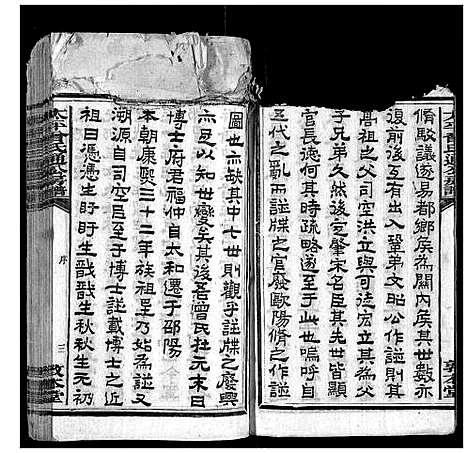 脩駁議遂易都鄉侯為關內侯其世數亦
復前後互有出入弟文昭公作誌則
高祖之父司空洪立與可徒宏立其為父
子兄弟久然後定肇宋名臣其先世皆顯
官長德何其時疏略遂至于此也嗚呼自
五代之亂而譜牒之官廢歐陽脩之作譜
圖世亦缺其中七世則觀乎譜牒之廢興
亦足以知世變矣其後吾曾氏杜元末曰
博士府君福仲自太和遷于邵陽
本朝康熙三十二年族祖某乃始為譜又
溯源自司空臣至于博士譜載博士之近
祖曰憑憑生盱盱生戩戩生秋秋生元初
序
三
敦本堂